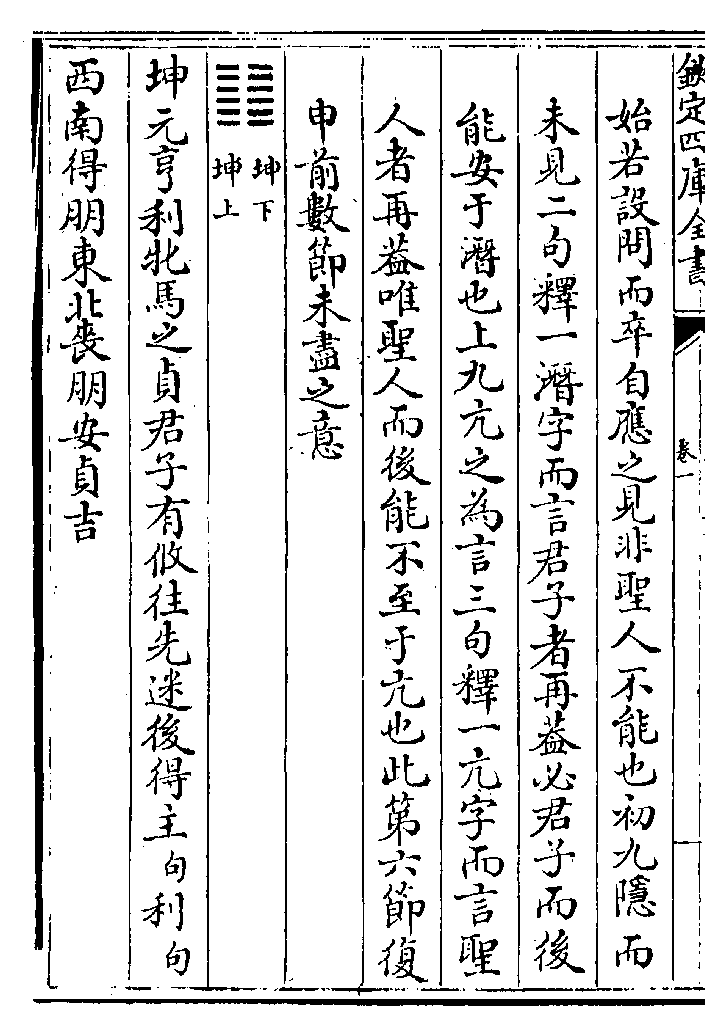 欽定四庫全書
卷一
始若設問而卒自應之見非聖人不能也初九隱而
未見二句釋一潛字而言君子者再葢必君子而後
能安于潛也上九亢之為言三句釋一亢字而言聖
人者再葢唯聖人而後能不至于亢也此第六節復
申前數節未盡之意
䷁坤下
坤上
坤元亨利牝馬之貞君子有攸往先迷後得主句利句
西南得朋東北喪朋安貞吉